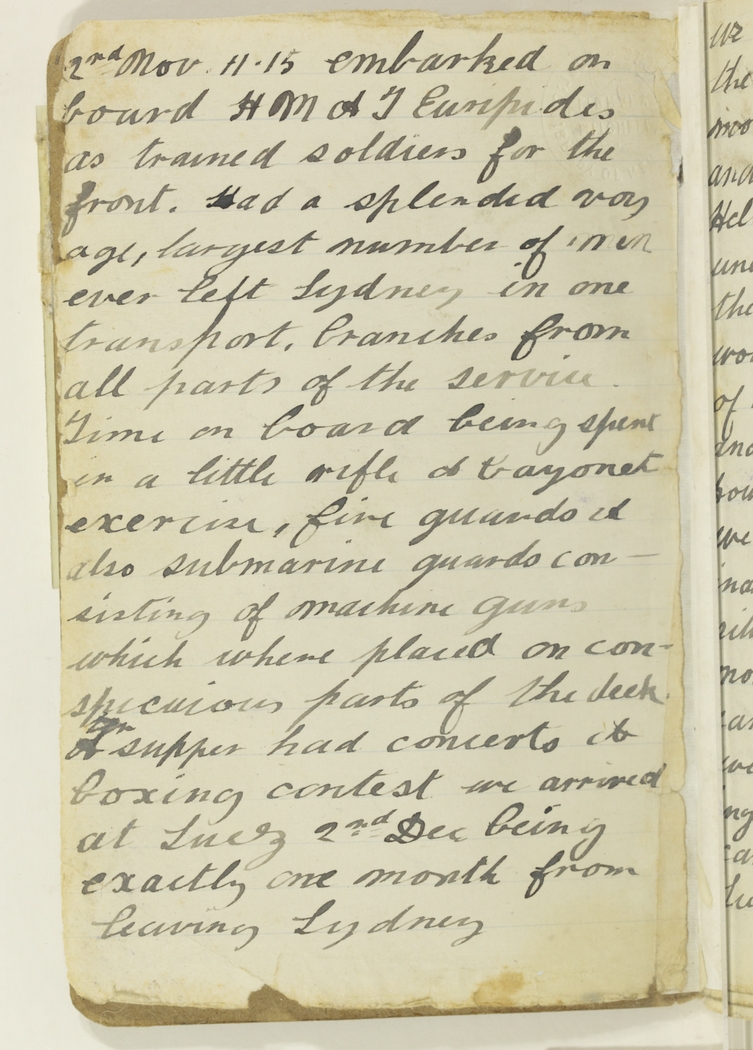 2nd Nov. 11.15 embarked on
board H M A T Euripides
as trained soldiers for the
front. Had a splendid voy
age, largest number of men
ever left Sydney in one
transport, branches from
all parts of the service.
Time on board being spent
in a little rifle & bayonet
exercise, five guards &
also submarine guards con-
sisting of machine guns
which where placed on con-
spicuious parts of the deck
supper had concerts &
boxing contest we arrived
at Suez 2nd Dec being
exactly one month from
leaving Sydney
we
the
and
Hel
the
of
we